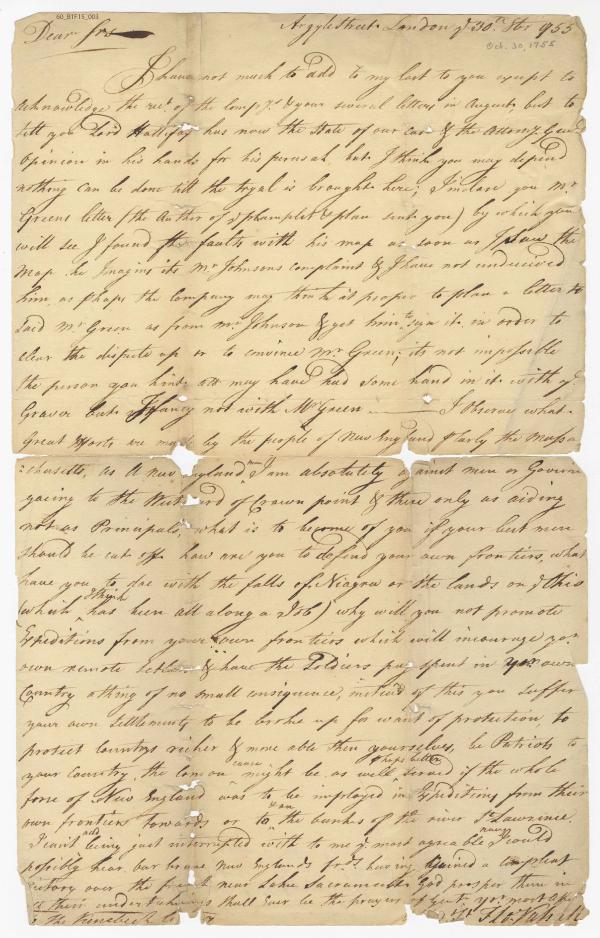 60_B1F15_003
Argyle Street London ye 30th 8br 1755
Oct. 30, 1755
Dear Sir
I have not much to add to my last to you except to
Acknowledge the rect. of the Compys. & your several letters in August, but to
tell you Lord Hallifax has now the State of our case & the Attorny Genls
Opinion in his hands for his perusal but I think you may depend
nothing can be done till the tryal is brought here; I inclose you Mr
Greens letter (the Auther of ye phamplet & plan sent you) by which you
will see I found the faults with his map as soon as I saw the
Map he Imagins its Mr Johnsons complaint & I have not undeceived
him, as phaps the Company may think it proper to plan a letter to
said Mr Green as from Mr Johnson & get him to sign it in order to
clear the dispute up or to convince Mr Green; its not impossible
the person you hint att may have had some hand in it with ye
Graver but I fancy not with Mr Green I observe what
Great Efforts are made by the people of New England & plarly the Massa
:chusetts, as A new England man I am absolutely against men or Goverm
going to the Westward of Crown point & there only as aiding
not as Principals, what is to become of you if your best men
should be cut off how are you to defend your own frontiers, what
have you to doe with the falls of Niagow or the lands on ye Ohio
(which I think has been all along a ) why will you not promote
Expeditions from your own frontiers which will incourage yor
own remote & have the Soldiers pay spent in your own
Country a thing of no small consiquence, instead of this you suffer
your own Settlements to be broke up for want of protection, to
protect Countrys richer & more able then yourselves, be Patriots to
your Country, the common cause might be as well phaps better served if the whole
force of New England was to be imployed in Expeditions from their
own frontiers towards or to & on the banks of the river St Lawrence.
I can't add being just interrupted with to me ye most agreable news I could
possibly hear our brave New Englands frds. having gained a compleat
victory over the french near Lake Sacrament God prosper them in
all their undertakings shall Ever be the prayer of Gent. yor most
is the Kenebeck to Flo. Vassall